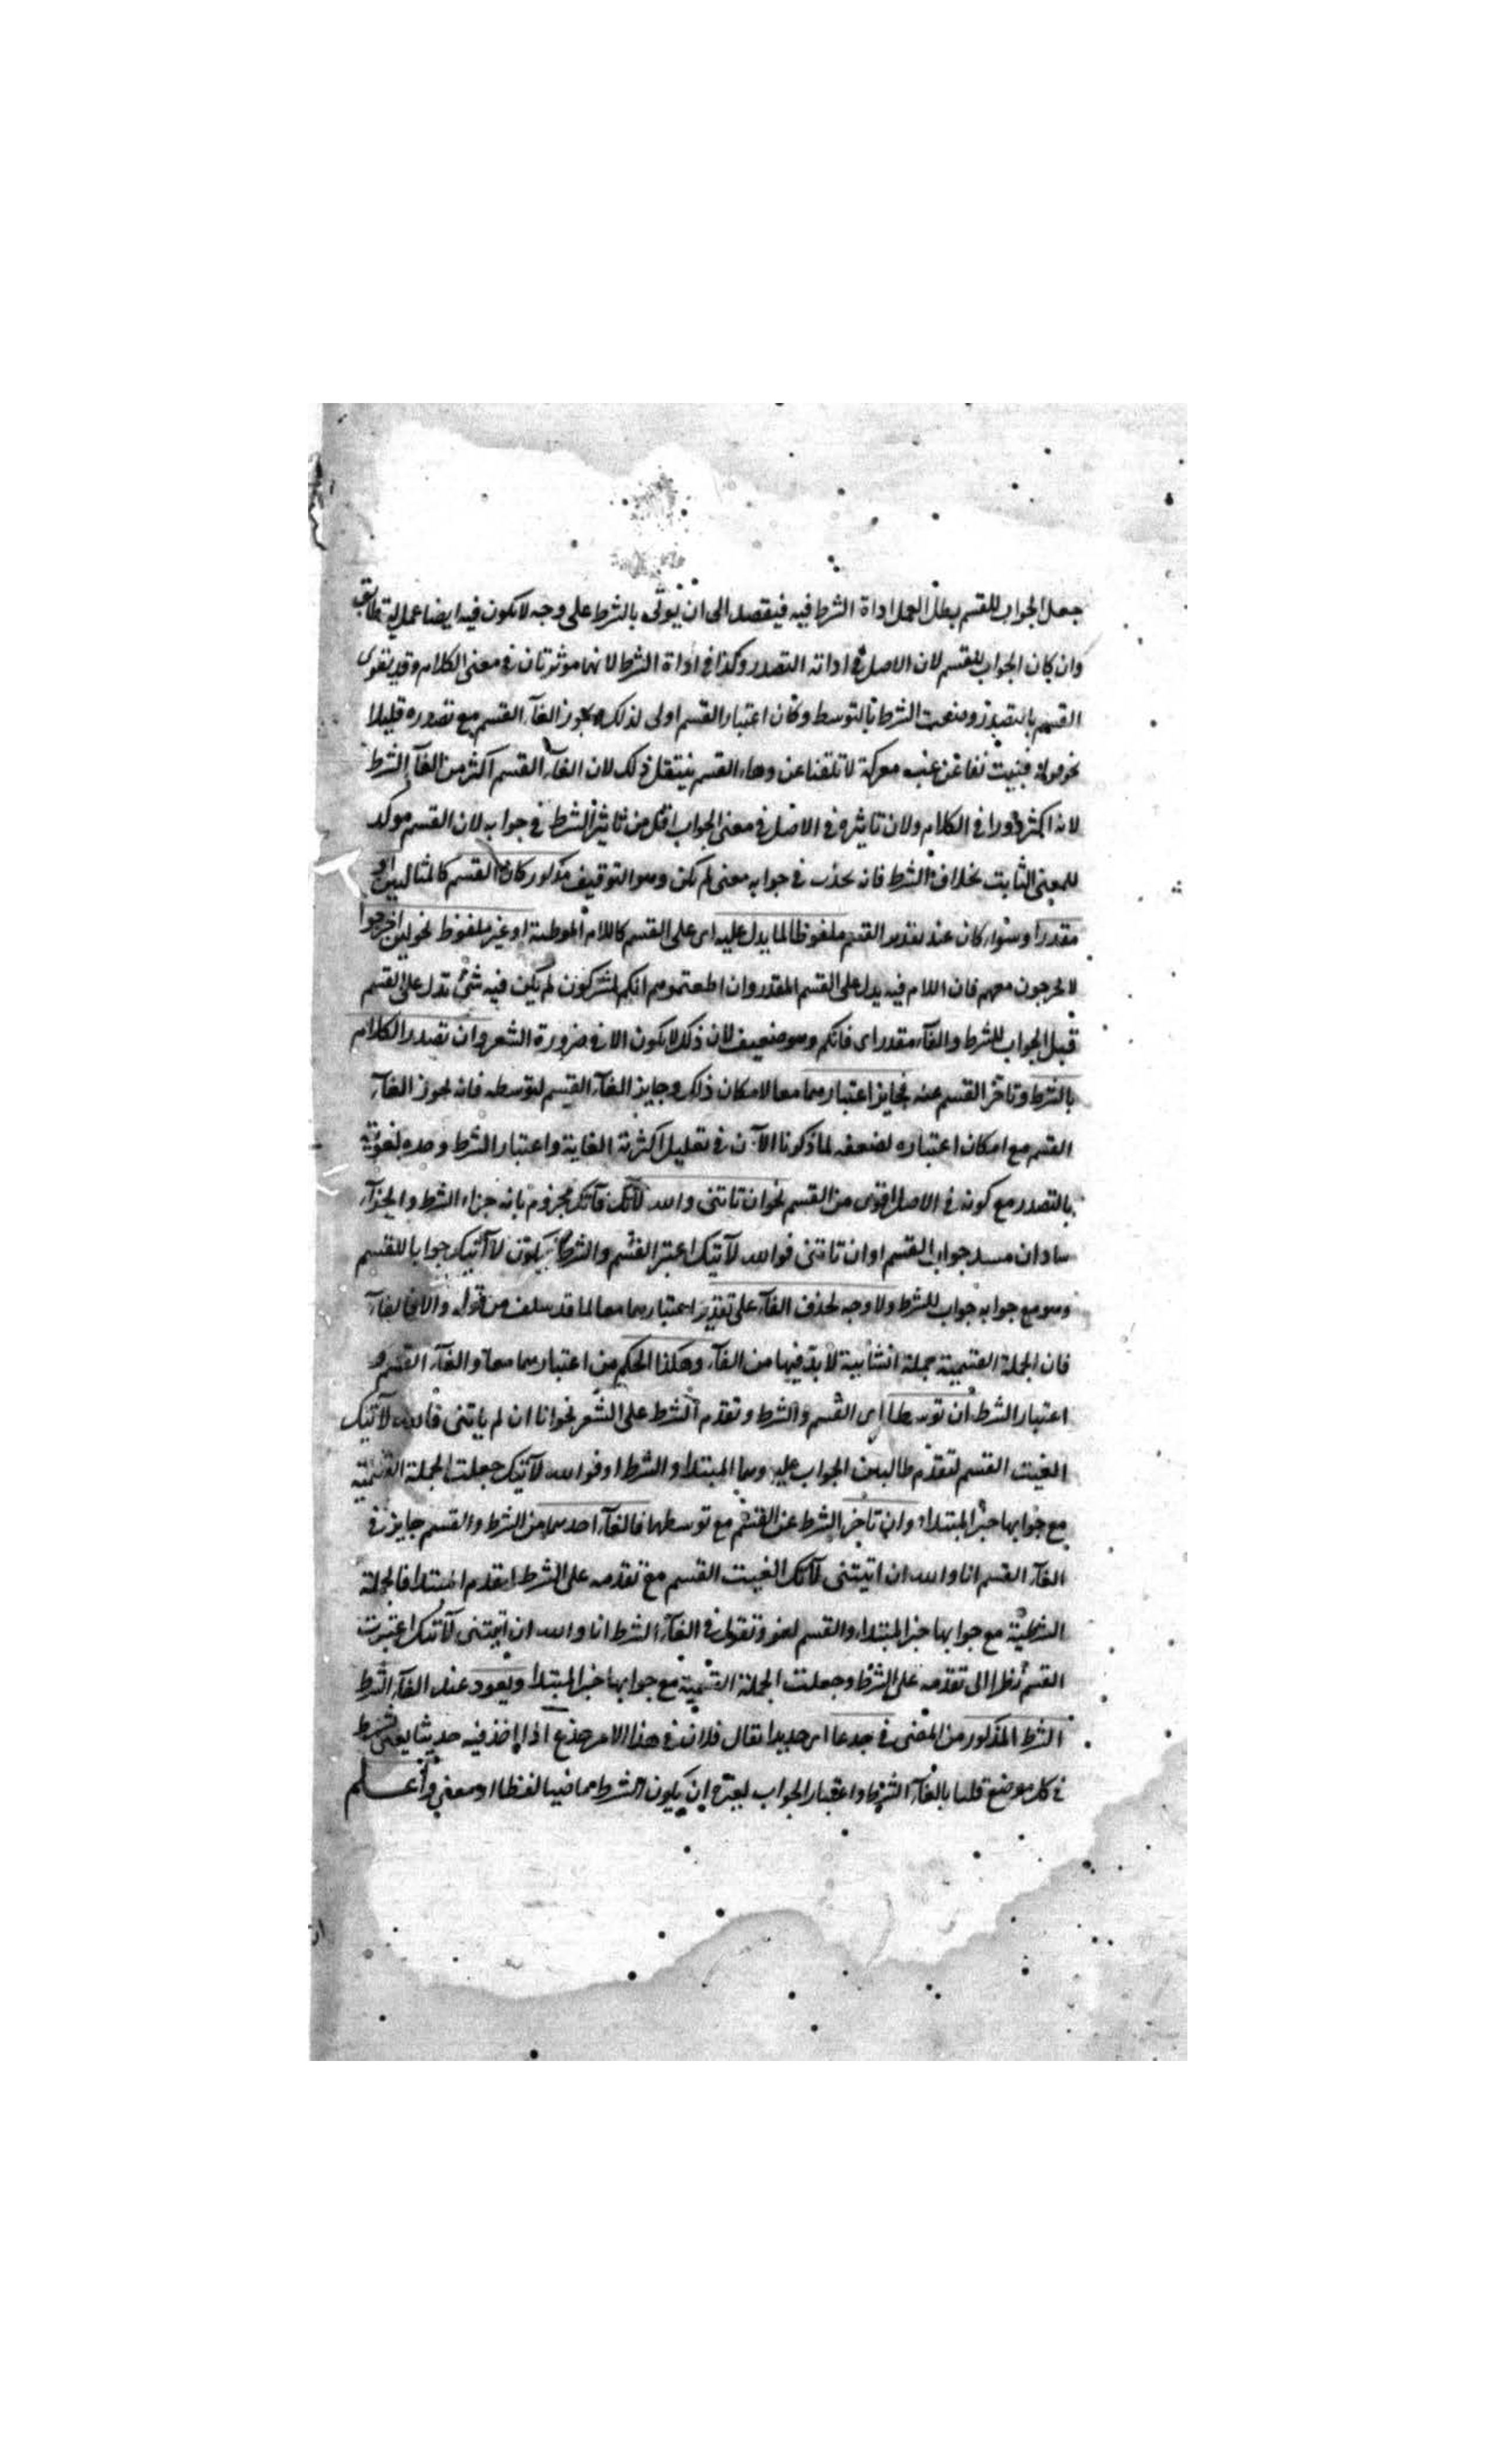 جعل الجواب للقسم بطل العمل اداة الشرط فيه فيقصد الى ان يؤتى بالشرط على وجه لا يكون فيه ايضا عمل ليتطابق
وان كان الجواب للقسم لان الاصل فى اداته التصدر وكذا فى اداة الشرط لانهما موثرتان فى معنى الكلام وقد تقوى
القسم بالتصدر وضعف الشرط بالتوسط وكان اعتبار القسم اولى لذلك ويجوز الغآء القسم مع تصدره قليلا
نحو قوله منيت عن غب معركة لا تلفنا عن دماء القوم ننتفل ذلك لان الغآء القسم اكثر من الغآء الشرط
لانه اكثر دورا فى الكلام ولان تاثيره فى الاصل فى معنى الجواب اقل من تاثير الشرط فى جوابه لان القسم موكد
للمعنى الثابت بخلاف الشرط فانه يحدث فى جوابه معنى لم يكن وهو التوقيف مذكور كان القسم كالمثالين او
مقدرا وسواء كان عند تقدير القسم ملفوظا لما يدل عليه اى على القسم كاللام الموطئة او غير ملفوظ نحو لئن اخرجوا
لا يخرجون معهم فان اللام فيه يدل على القسم المقدر وان اطعتموهم انكم لمشركون لم يكن فيه شئ تدل على القسم
قبل الجواب للشرط والفآء مقدر اى فانكم وهو ضعيف لان ذلك لا يكون الا فى ضرورة الشعر وان تصدر الكلام
بالشرط وتاخر القسم عنه فجايز اعتبارهما معا لامكان ذلك وجايز الغآء القسم لتوسطه فانه يجوز الغآء
القسم مع امكان اعتباره لضعفه لما ذكرنا الآن فى تعليل اكثرية الغاية واعتبار الشرط وحده لتقويته
بالتصدر مع كونه فى الاصل اقوى من القسم نحو ان تاتنى والله لآتك فآتك مجزوم بانه جزاء الشرط والجزآء
سادان مسد جواب القسم او ان تاتنى فوالله لآتيك اعتبر القسم والشرط فيكون لآتيك جوابا للقسم
وهو مع جوابه جواب للشرط ولا وجه لحذف الفآء على تقدير اعتبارهما معا لما قد سلف من قوله والا فالفآء
فان الجملة القسمية جملة انشايية لا بد فيها من الفآء وهكذا الحكم من اعتبارهما معا والغآء القسم و
اعتبار الشرط ان توسطا اى القسم والشرط وتقدم الشرط على القسم نحو انا ان لم ياتنى فوالله لآتيك
الغيت القسم لتقدم طالبين الجواب عليه وهما المبتدا والشرط او فوالله لآتيك جعلت الجملة القسمية
مع جوابها خبر المبتداء وان تاخر الشرط عن القسم مع توسطهما فالغآء احدهما من الشرط والقسم جايز فى
الغآء القسم انا والله ان اتيتنى لآتك الغيت القسم مع تقدمه على الشرط لتقدم المبتدا فالجملة
الشرطية مع جوابها خبر المبتداء والقسم لغو وتقول فى الغآء الشرط انا والله ان اتيتنى لآتيك اعتبرت
القسم نظرا الى تقدمه على الشرط وجعلت الجملة القسمية مع جوابها خبر المبتدا ويعود عند الغآء الشرط
الشرط المذكور من المضى فى جذعا اى جديدا يقال فلان فى هذا الامر جذع اذا اخذ فيه حديثا يعنى يشترط
فى كل موضع قلنا بالغآء الشرط واعتبار الجواب لغيره ان يكون الشرط ماضيا لفظا او معنى واعلم